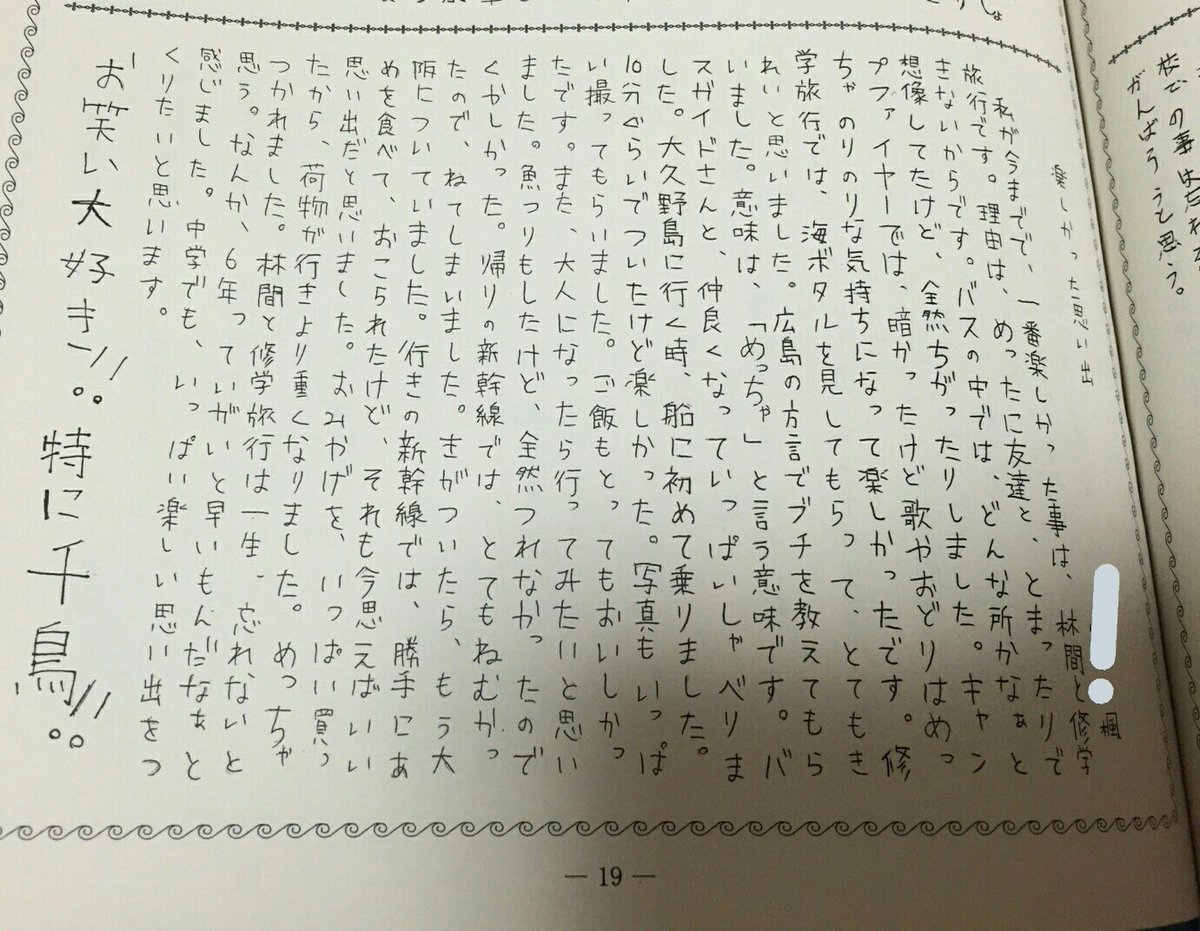 校での事は忘れ
がんばろうと思う。
楽しかった思い出
楓
私が今までで、一番楽しかった事は、林間と修学
旅行です。理由は、めったに友達と、とまったりで
きないからです。バスの中では、どんな所かなぁと
想像してたけど、全然ちがったりしました。キャン
プファイヤーでは、暗かったけど歌やおどりはめっ
ちゃのりのりな気持ちになって楽しかったです。修
学旅行では、海ボタルを見してもらって、とてもき
れいと思いました。広島の方言でブチを教えてもら
いました。意味は、「めっちゃ」と言う意味です。バ
スガイドさんと、仲良くなっていっぱいしゃべりま
した。大久野島に行く時、船に初めて乗りました。
10分ぐらいでついたけど楽しかった。写真もいっぱ
い撮ってもらいました。ご飯もとってもおいしかっ
たです。また、大人になったら行ってみたいと思い
ました。魚つりもしたけど、全然つれなかったので
くやしかった。帰りの新幹線では、とてもねむかっ
たので、ねてしまいました。きがついたら、もう大
阪についていました。行きの新幹線では、勝手にあ
めを食べて、おこられたけど、それも今思えばいい
思い出だと思いました。おみやげを、いっぱい買っ
たから、荷物が行きより重くなりました。めっちゃ
つかれました。林間と修学旅行は一生、忘れないと
思う。なんか、6年っていがいと早いもんだなぁと
感じました。中学でも、いっぱい楽しい思い出をつ
くりたいと思います。
お笑い大好き!!。特に千鳥!!。
— 19 —